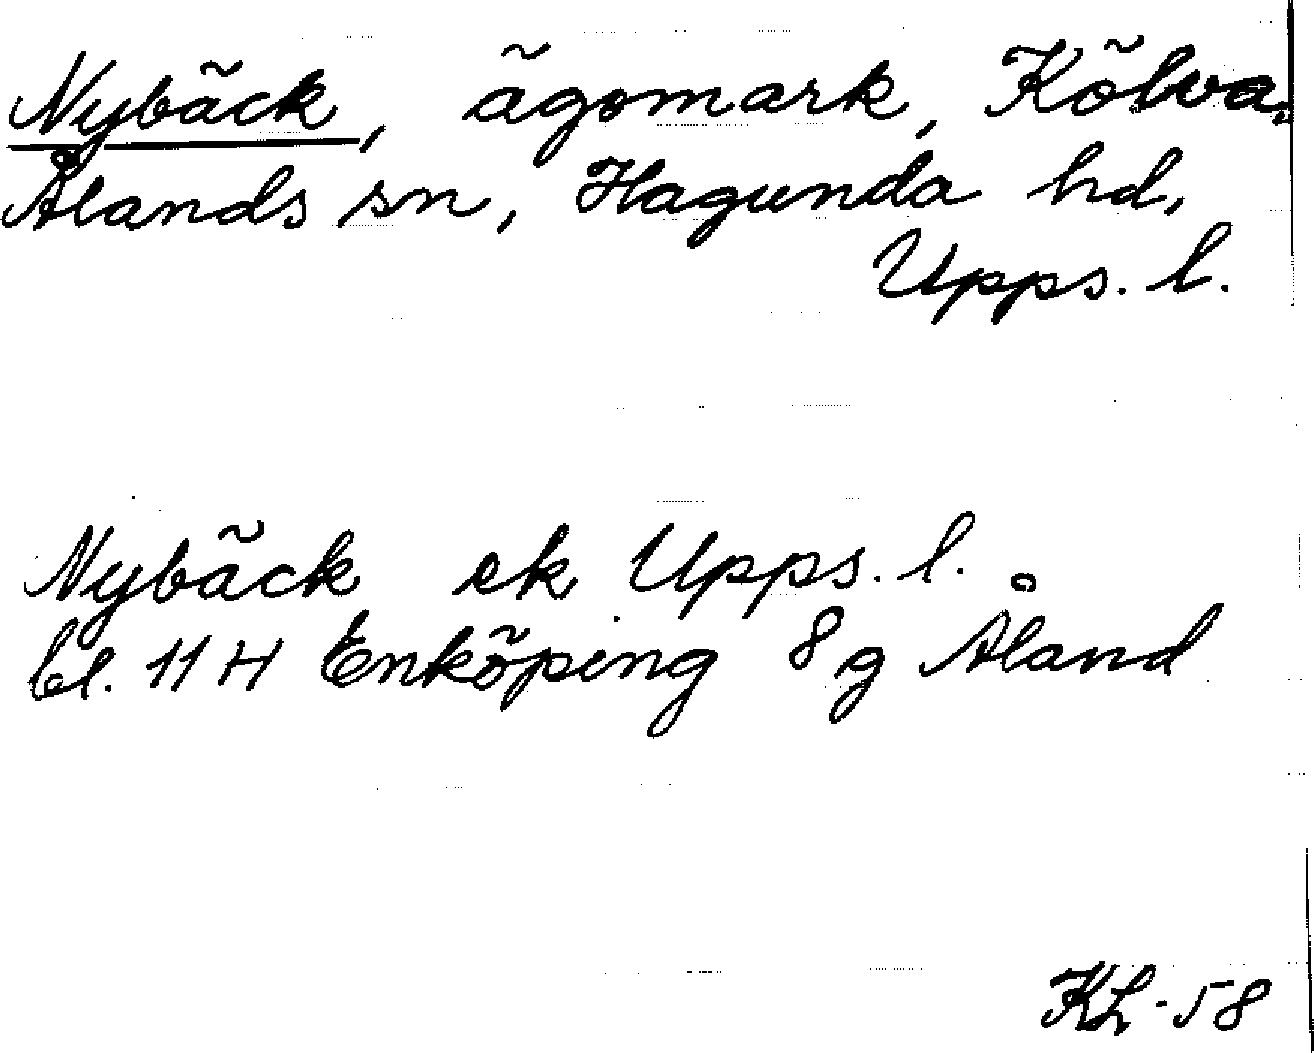 Nybäck, ägomark, Kölva,
Ålands sn, Hagunda hd,
Upps. l.
Nybäck ek Upps. l.
bl. 11 H Enköping 8 g Åland
KL-58